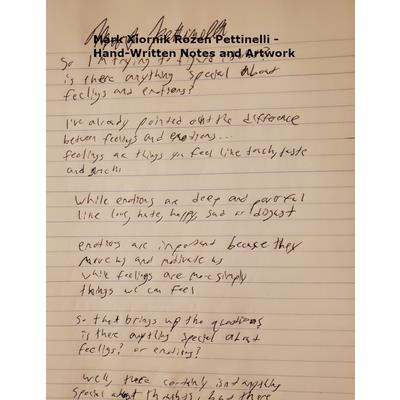 Mark Xiornik Rozen Pettinelli -
Hand-Written Notes and Artwork
So I'm trying to figure
is there anything special about
feelings and emotions?
I've already pointed out the difference
between feelings and emotions...
feelings are things you feel like touch, taste
and smell
While emotions are deep and powerful
like love, hate, happy, sad or disgust
emotions are important because they
move us and motivate us
while feelings are more simply
things we can feel
So that brings up the questions
is there anything special about
feelings? or emotions?
Well, there certainly isn't anything
special about thoughts, but there